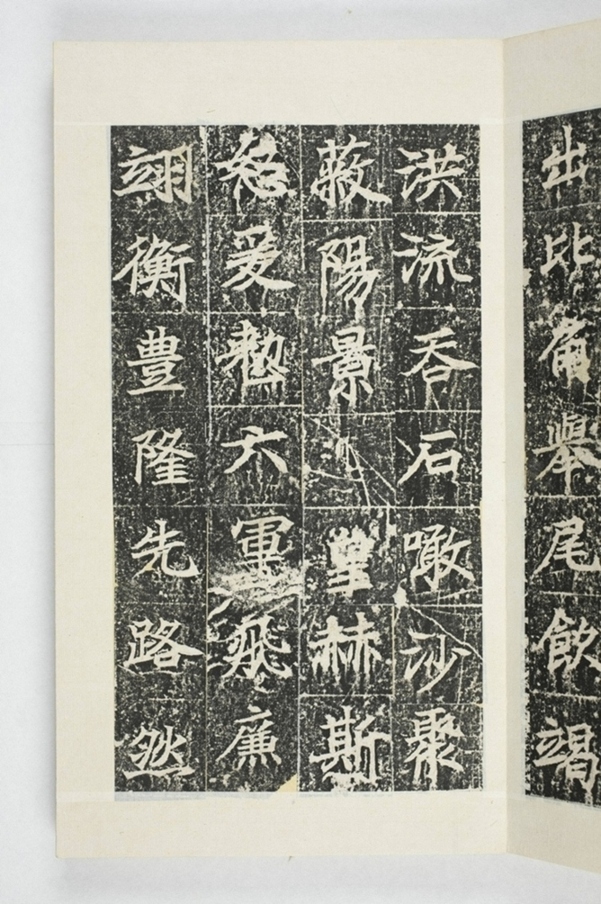 出比角舉尾飲竭
洪流吞石噉沙聚
蔽陽景赫斯
怒爰整六軍飛廉
翊衡豊隆先路然